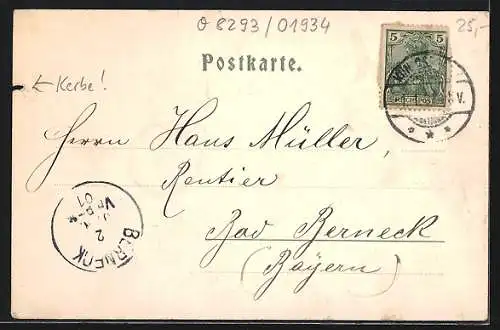 O 8293/01934
25,-
5 5
REICHSPOST
Postkarte.
← Kerbe!
V.
Herrn Hans Müller,
Rentier
Bad Berneck
(Bayern)
BERNECK
2
01